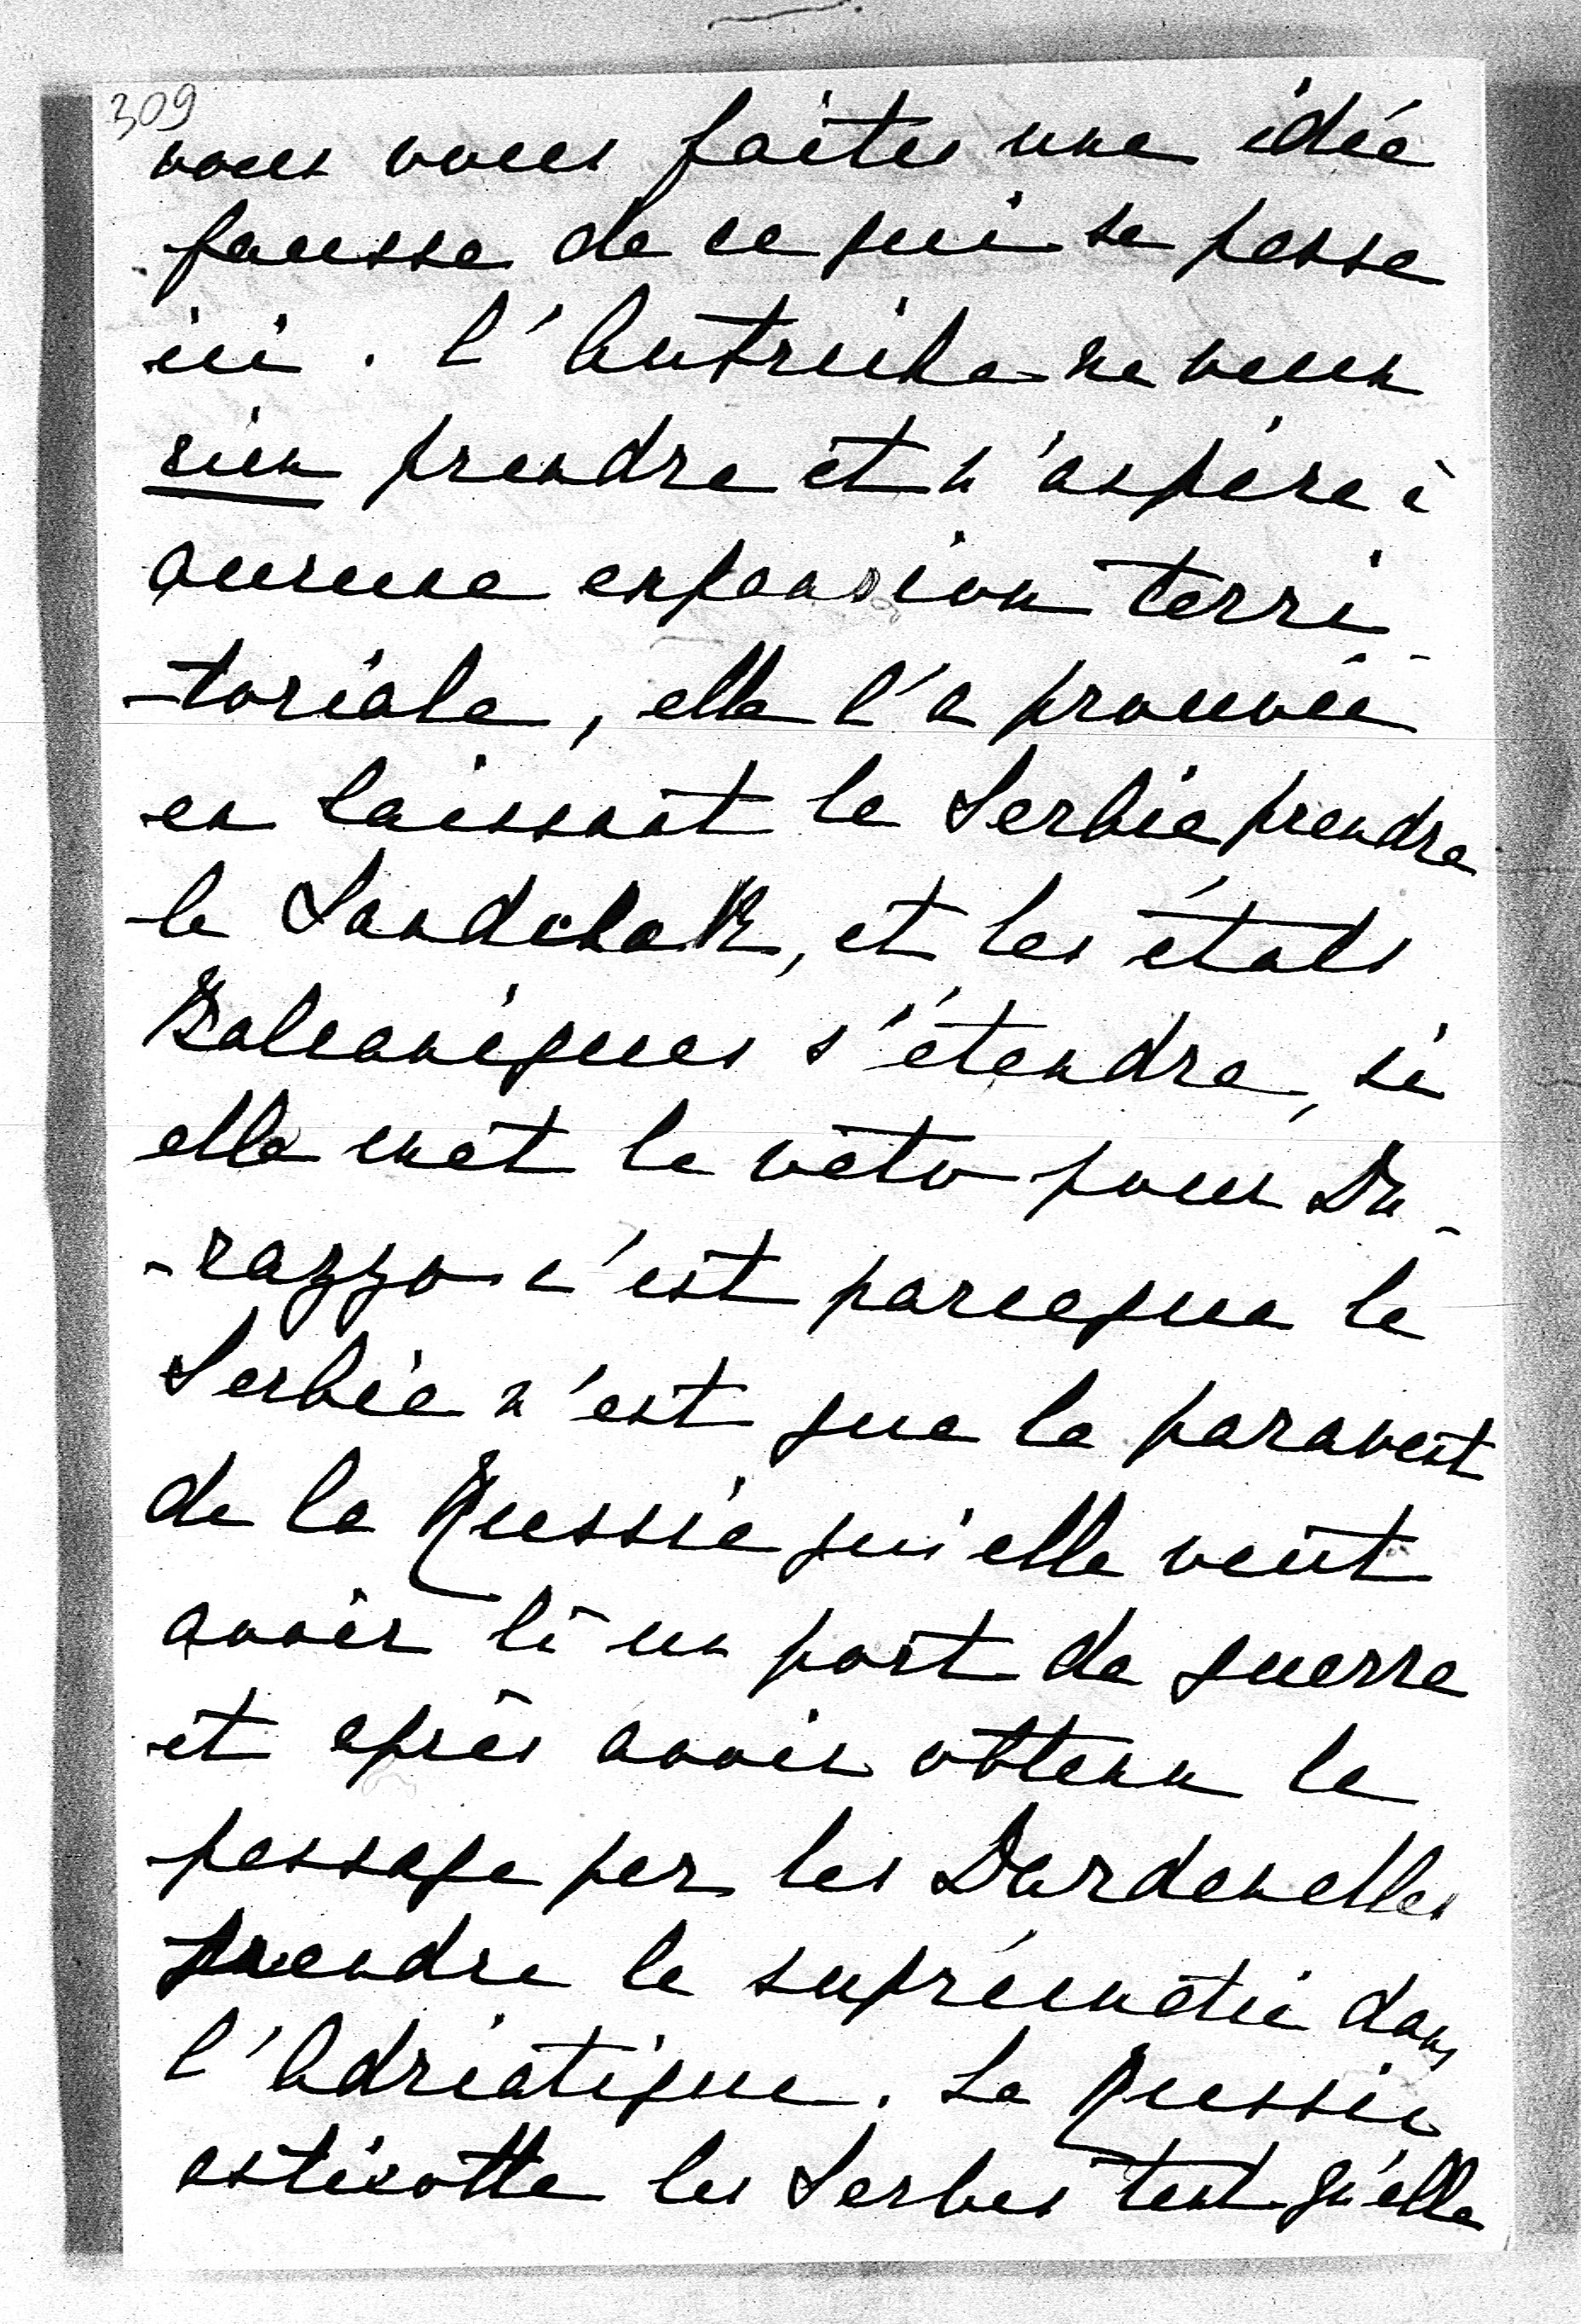 309
vous vous faites une idée
fausse de ce qui se passe
ici. l'Autriche ne veux
rien prendre et n'aspire à
aucune expansion terri-
-toriale, elle l'a prouvée
en laissant la Serbie prendre
le Sandchak, et les états
Balcaniques s'étendre, si
elle met le véto pour Du-
-razzo c'est parceque la
Serbie n'est que le paravent
de la Russie qui elle veut
avoir là un port de guerre
et après avoir obtenu le
passage par les Dardenelles
prendre la suprématie dans
l'Adriatique. La Russie
asticotte les Serbes tant qu'elle